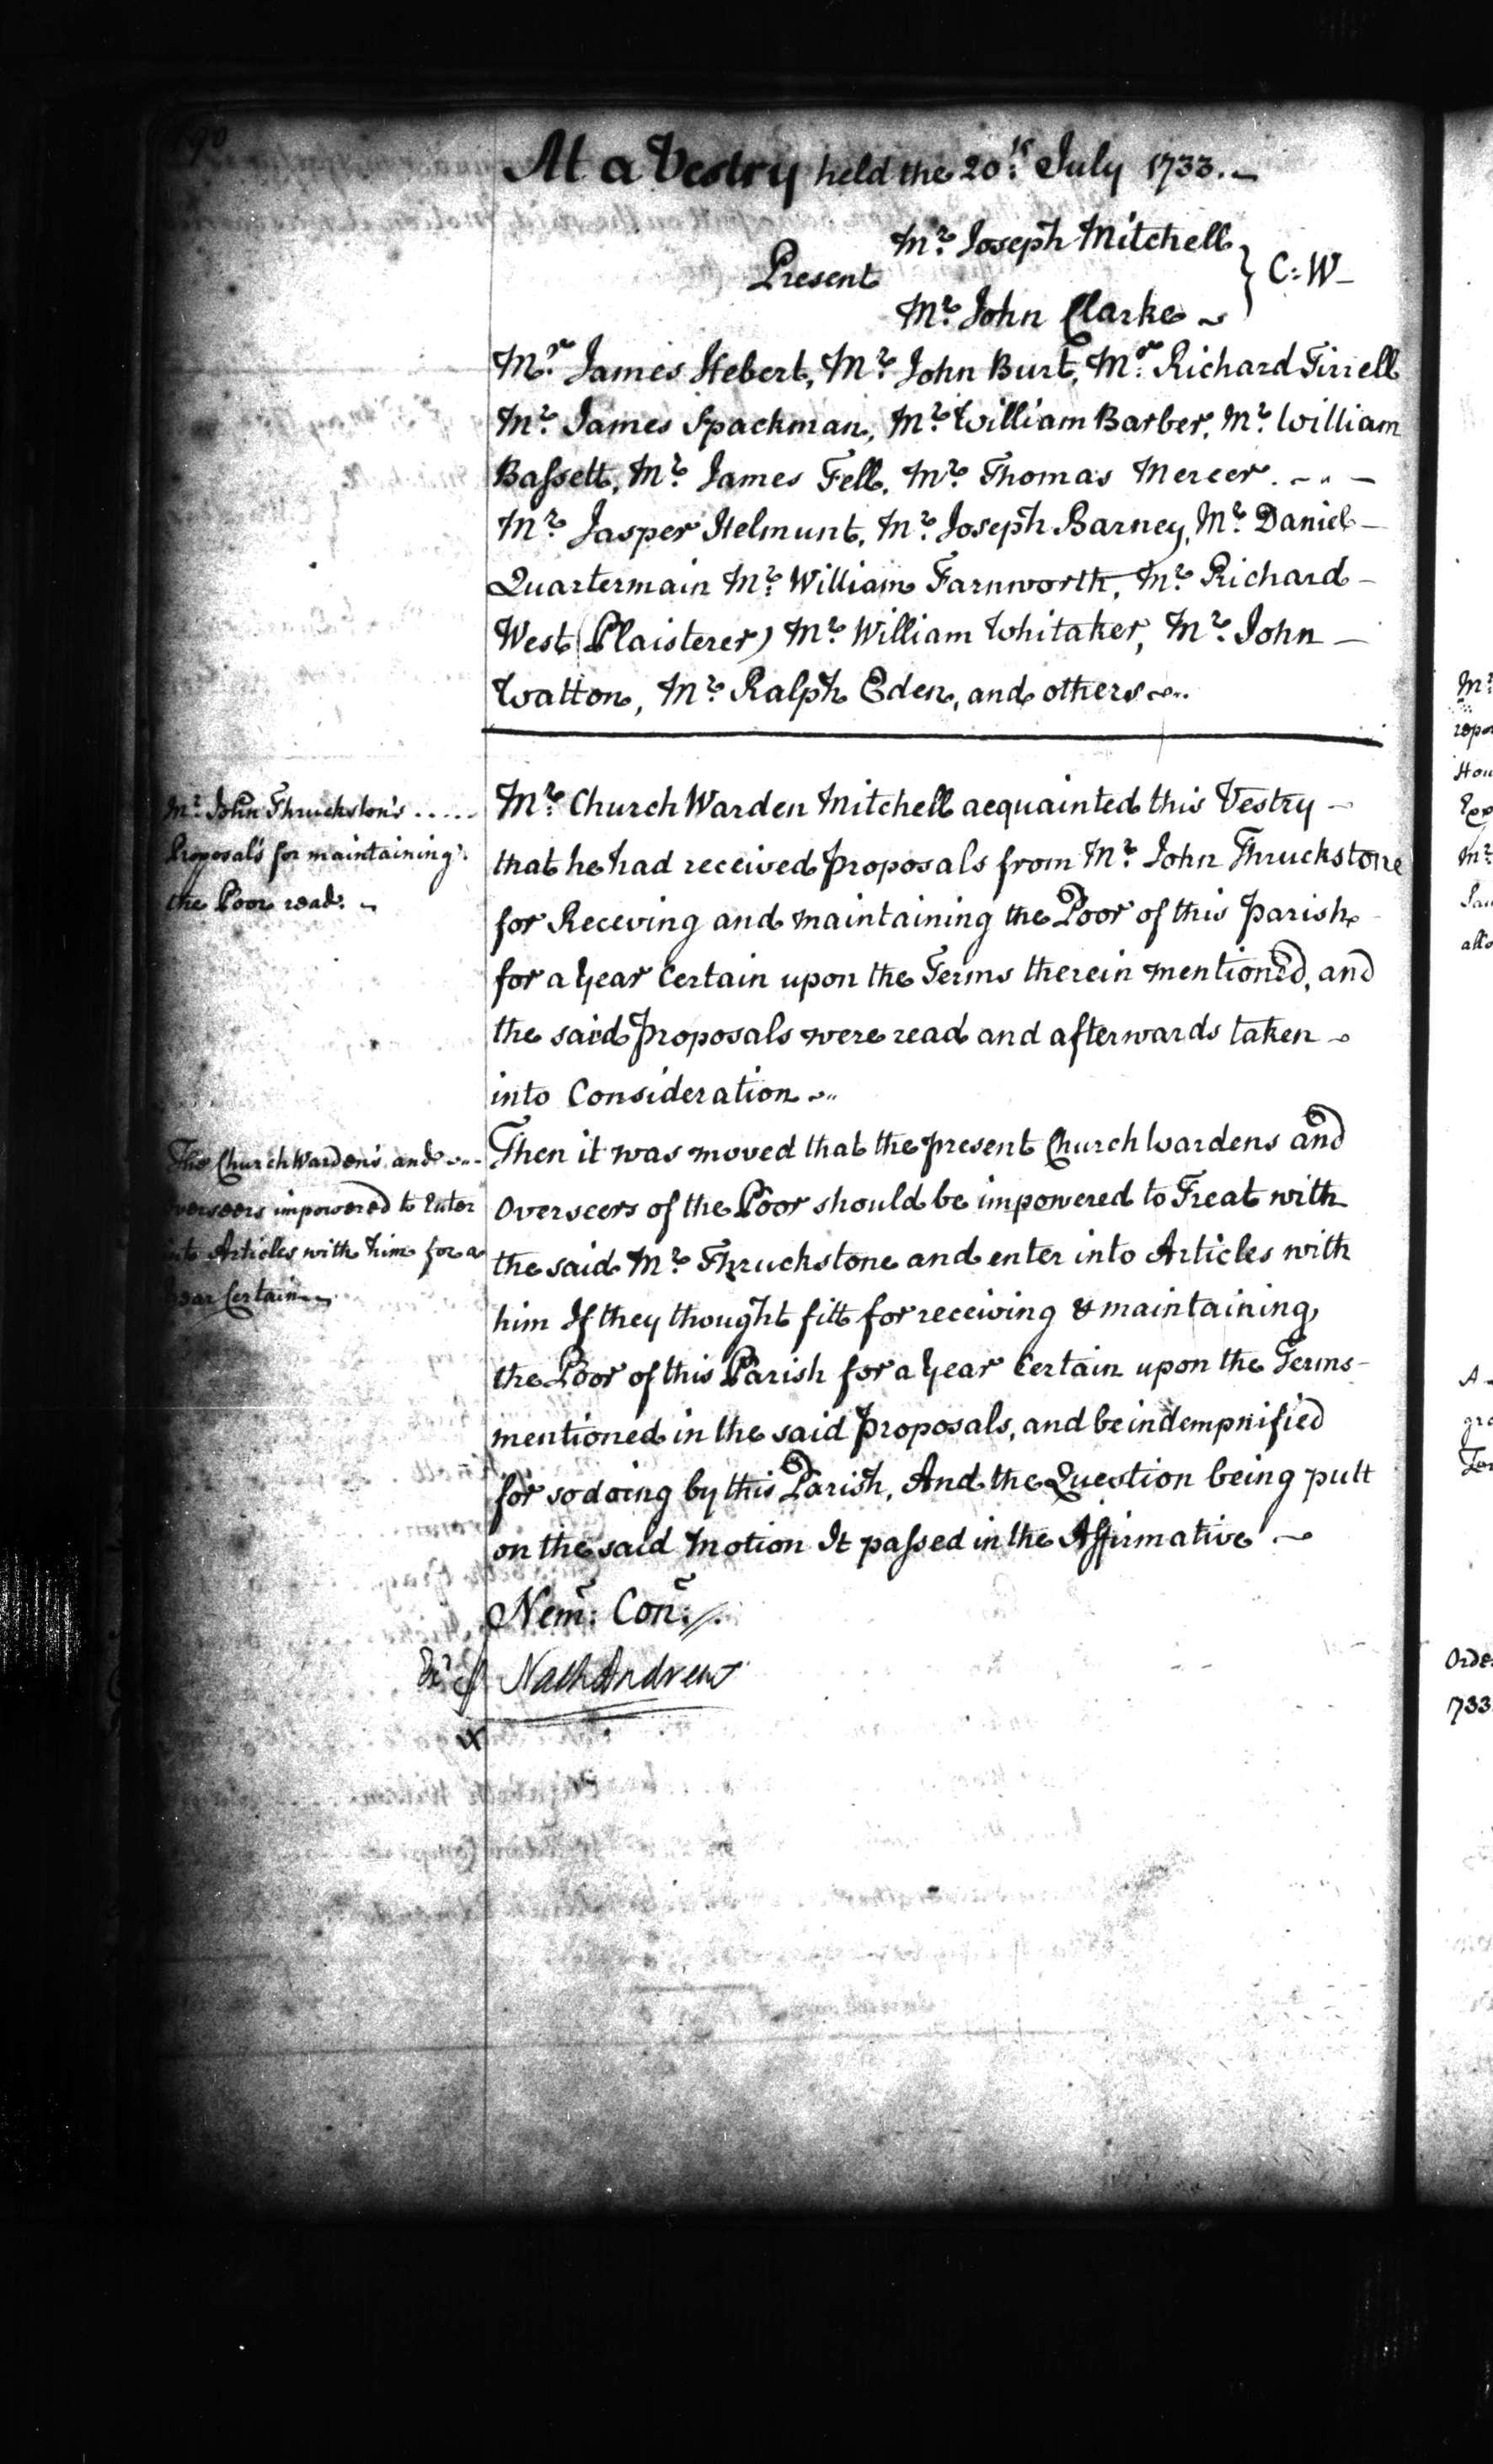 90
At a Vestry held the 20th July 1733.
Mr. Joseph Mitchell
Present } C:W
Mr. John Clarke
Mr. James Hebert, Mr. John Burt, Mr. Richard Tirrell
Mr. James Spackman, Mr. William Barber, Mr. William
Bassett, Mr. James Fell, Mr. Thomas Mercer.
Mr. Jasper Helmunt, Mr. Joseph Barney, Mr. Daniel
Quartermain Mr. William Farnworth, Mr. Richard
West (Plaisterer) Mr. William Whitaker, Mr. John
Walton, Mr. Ralph Eden, and others
Mr. John Thruckston's
Proposals for maintaining
the Poor read.
Mr. Church Warden Mitchell acquainted this Vestry
that he had received proposals from Mr. John Thruckstone
for Receving and maintaining the Poor of this parish
for a Year Certain upon the Terms therein mentioned, and
the said proposals were read and afterwards taken
into Consideration
The Church Wardens and
Overseers impowered to Enter
into Articles with him for a
Year Certain
Then it was moved that the present Church Wardens and
Overseers of the Poor should be impowered to Treat with
the said Mr. Thruckstone and enter into Articles with
him If they thought fitt for receiving & maintaining
the Poor of this Parish for a Year Certain upon the Terms
mentioned in the said proposals, and be indempnified
for so doing by this Parish, And the Question being putt
on the said Motion It passed in the Affirmative
Nem: Con:
Nath Andrews
x